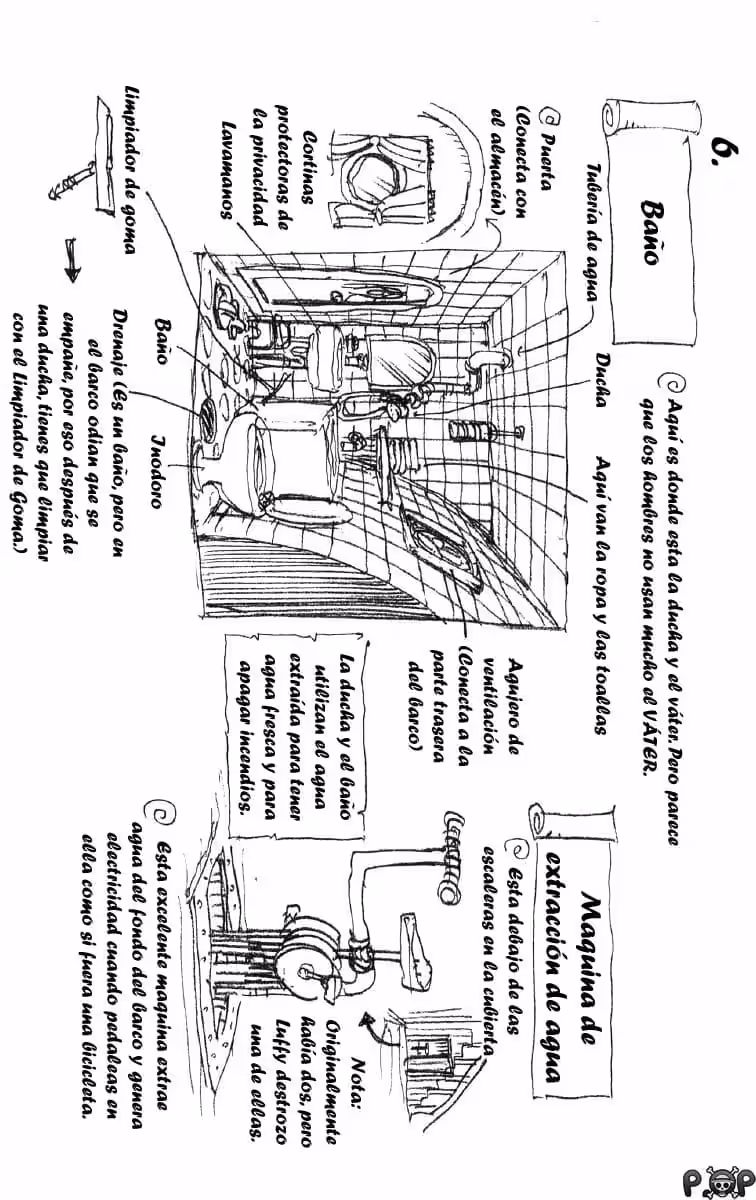 6.
Baño
Aquí es donde esta la ducha y el váter. Pero parece
que los hombres no usan mucho el VÁTER.
Tubería de agua
Ducha
Aquí van la ropa y las toallas
Puerta
(Conecta con
el almacén)
Cortinas
protectoras de
la privacidad
Lavamanos
Agujero de
ventilación
(Conecta a la
parte trasera
del barco)
Limpiador de goma
Baño
Inodoro
Drenaje (Es un baño, pero en
el barco odian que se
empañe, por eso después de
una ducha, tienes que limpiar
con el Limpiador de Goma.)
La ducha y el baño
utilizan el agua
extraída para tener
agua fresca y para
apagar incendios.
Maquina de
extracción de agua
Esta debajo de las
escaleras en la cubierta
Nota:
Originalmente
había dos, pero
Luffy destrozo
una de ellas.
Esta excelente maquina extrae
agua del fondo del barco y genera
electricidad cuando pedaleas en
ella como si fuera una bicicleta.
POP